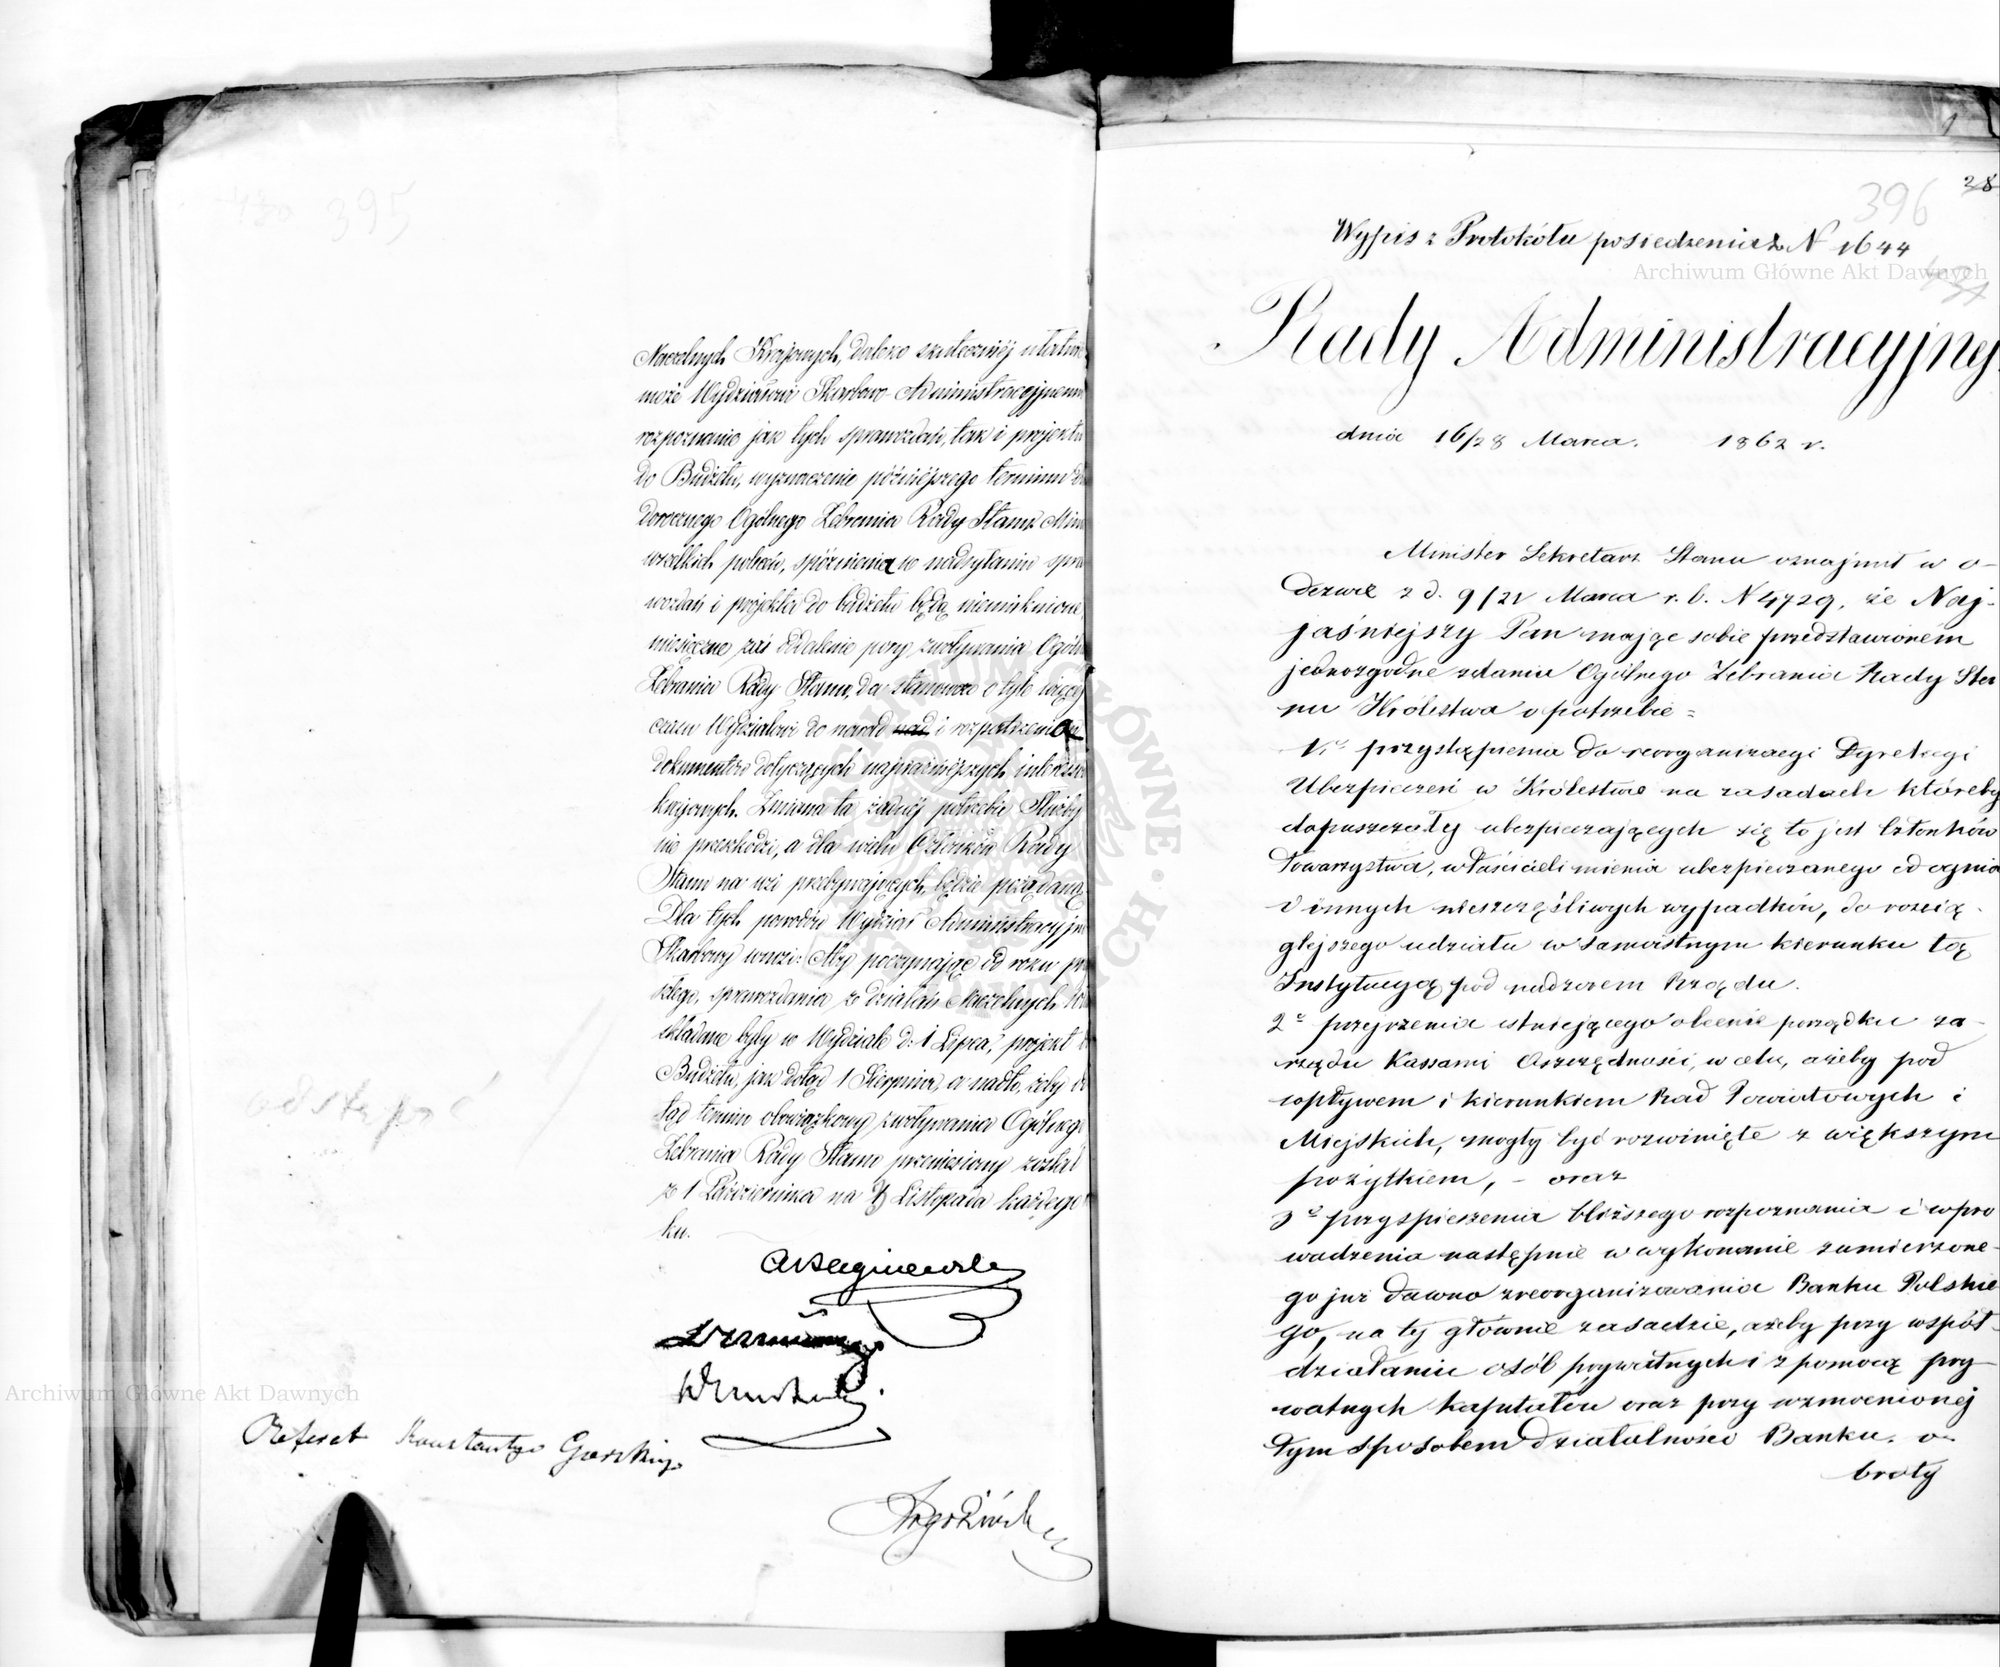 395
Naczelnych Krajowych, daleko skuteczniéj ułatwić
może Wydziałowi Skarbowo-Administracyjnemu
rozpoznanie jak tych sprawozdań, tak i projektu
do Budżetu, wyznaczenie późniéjszego terminu do
dorocznego Ogólnego Zebrania Rady Stanu. Mimo
wszelkich poleceń, spóźnienia w nadsyłaniu spra
wozdań i projektu do budżetu będą nieuniknione,
miesięczne zaś oddalenie pory zwoływania Ogóln
Zebrania Rady Stanu, da stanowczo o tyle więcéj
czasu Wydziałowi do narad nad i rozpatrzenia
dokumentów dotyczących najważniéjszych interessów
krajowych. Zmiana ta żadnéj potrzebie Służby
nie przeszkodzi, a dla wielu Członków Rady
Stanu na wsi przebywających, będzie pożądaną.
Dla tych powodów Wydział Administracyjno
Skarbowy wnosi: Aby poczynając od roku przy
szłego, sprawozdania z działań Naczelnych Wł
składane były w Wydziale d: 1 Lipca, projekt do
Budżetu, jak dotąd 1 Sierpnia, a nadto, żeby od
tąd termin obowiązkowy zwoływania Ogólnego
Zebrania Rady Stanu przeniesiony został
z 1 Października na 1 Listopada każdego
ku.
odstąpić
Referat Konstantego Gorskiego
1
28
396
Wypis z Protokółu posiedzenia N 1644
Rady Administracyjnej
dnia 16/28 Marca. 1862 r.
Minister Sekretarz Stanu oznajmił w o-
dezwie z d. 9/21 Marca r. b. N 4729, że Naj-
jaśniejszy Pan mając sobie przedstawioném
jednozgodne zdanie Ogólnego Zebrania Rady Sta
nu Królestwa o potrzebie =
1.º przystąpienia do reorganizacyi Dyrekcyi
Ubezpieczeń w Królestwie na zasadach któreby
dopuszczały ubezpieczających się to jest Członków
Towarzystwa, właścicieli mienia ubezpieczanego od ognia
i innych nieszczęśliwych wypadków, do rozcią-
glejszego udziału w samoistnym kierunku tą
Instytucyą pod nadzorem Rządu.
2º przejrzenia istniejącego obecnie porządku za-
rządu Kassami Oszczędności, w celu, ażeby pod
wpływem i kierunkiem Rad Powiatowych i
Miejskich, mogły być rozwinięte z większym
pożytkiem, - oraz
3º przyspieszenia bliższego rozpoznania i wpro
wadzenia następnie w wykonanie zamierzone-
go już dawno zreorganizowania Banku Polskie
go, na téj głównie zasadzie, ażeby przy współ-
działaniu osób prywatnych i z pomocą pry-
watnych kapitałów oraz przy wzmocnionéj
tym sposobem działalności Banku, o-
broty
Archiwum Główne Akt Dawnych
Archiwum Główne Akt Dawnych